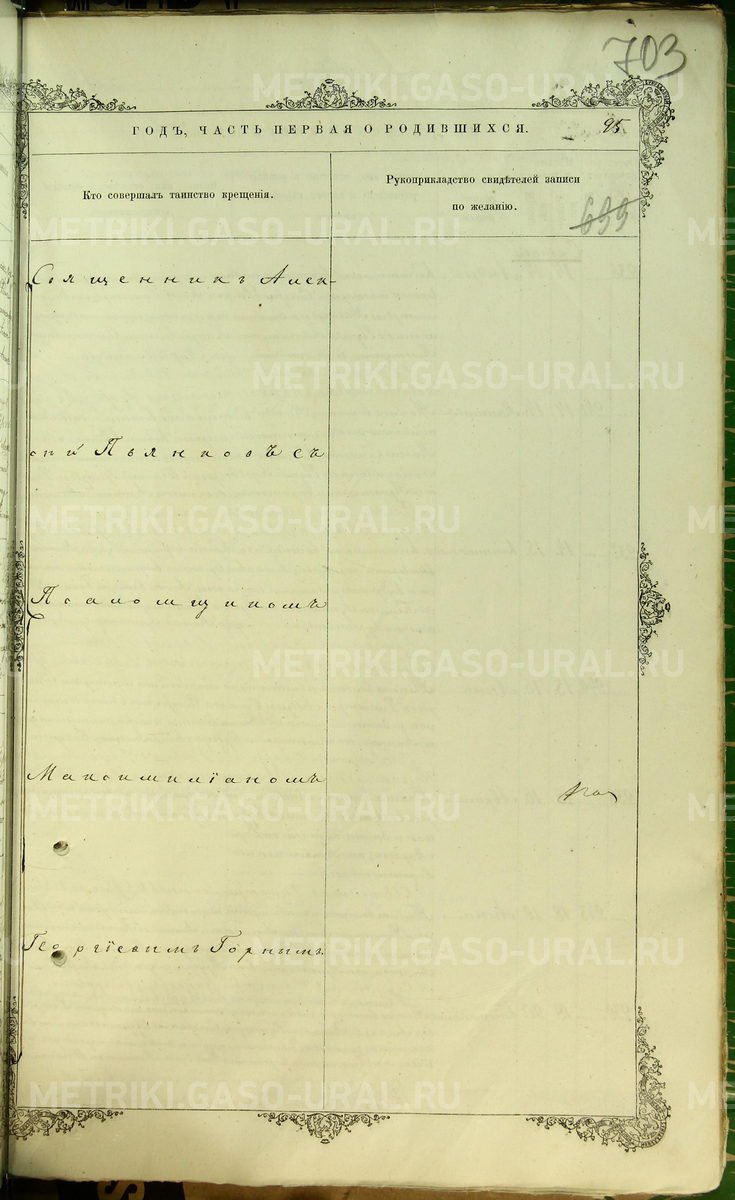 703
ГОДЪ, ЧАСТЬ ПЕРВАЯ О РОДИВШИХСЯ.
95
Кто совершалъ таинство крещенія.
Рукоприкладство свидѣтелей записи
по желанію.
699
Священникъ Алек-
сѣй Пьянковъ съ
Псаломщикомъ
Максимиліаномъ
Георгіевымъ Горнымъ.
METRIKI.GASO-URAL.RU